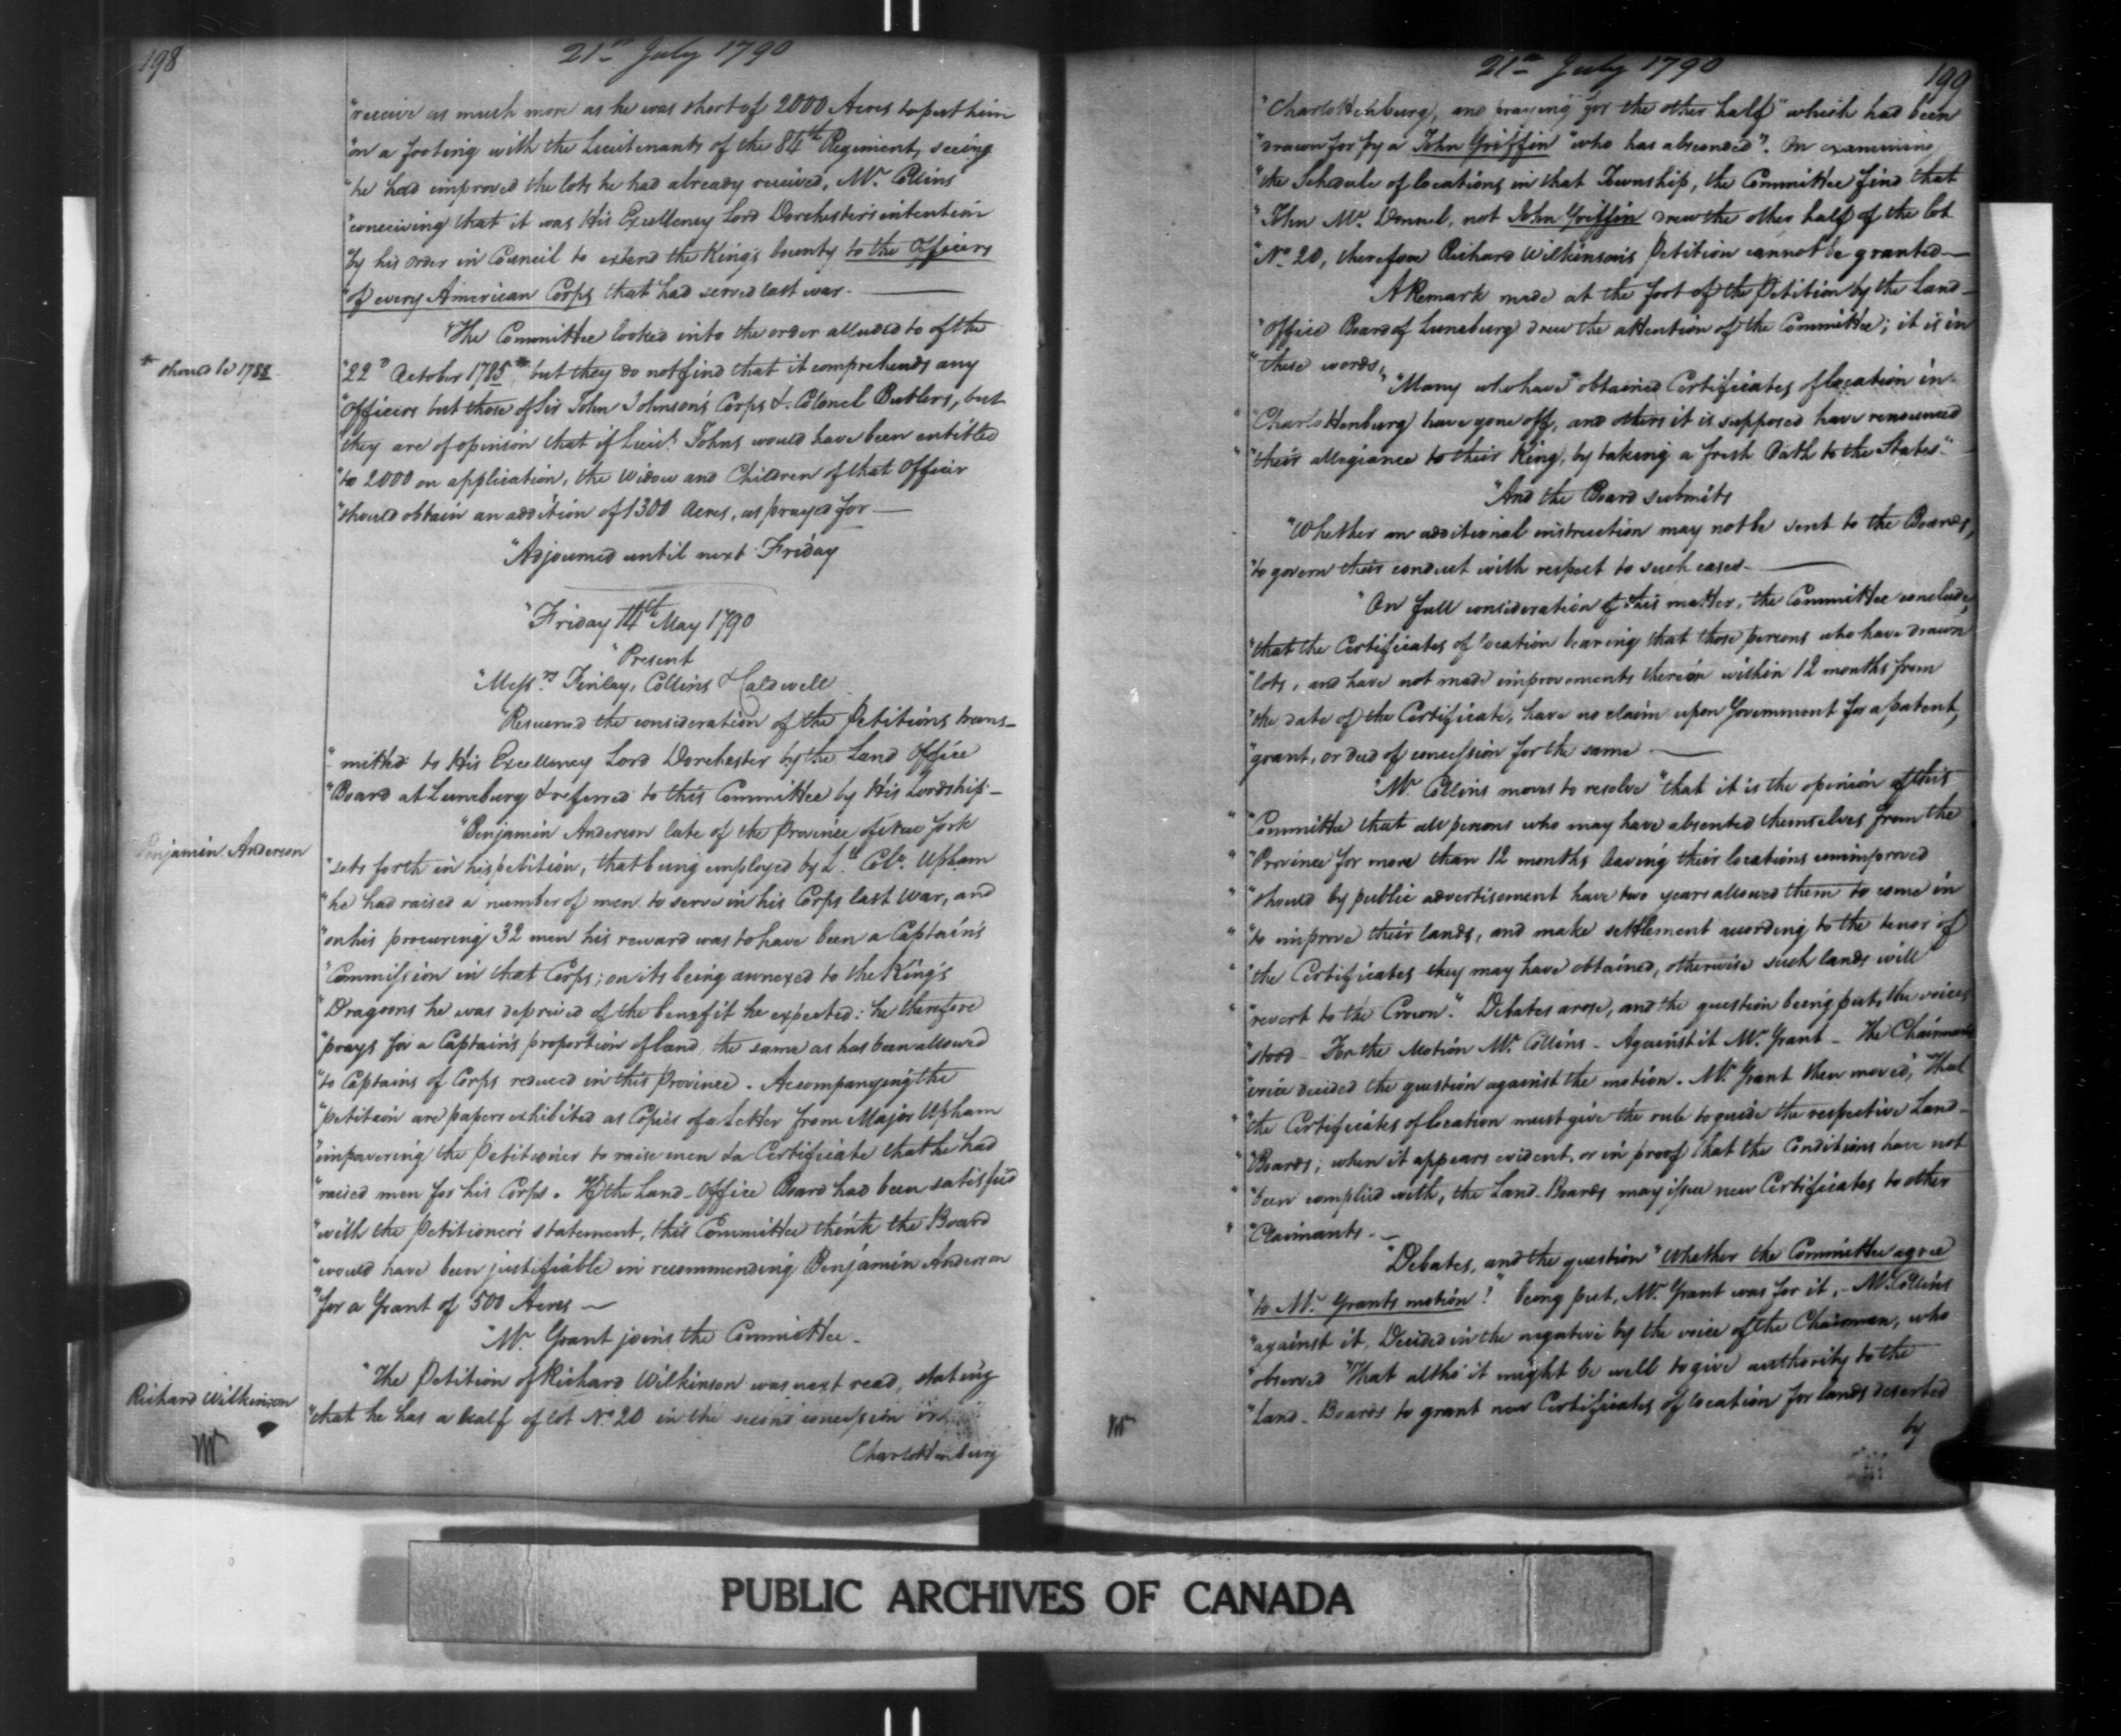 198
21st July 1790
"receive as much more as he was short of 2000 Acres to put him
"on a footing with the Lieutenants of the 84th Regiment, seeing
"he had improved the lots he had already received, Mr. Collins
"conceiving that it was His Excellency Lord Dorchester's intention
"by his order in Council to extend the King's bounty to the Officers
"of every American Corps that had served last war.
"The Committee looked into the order alluded to of the
* should be 1788
"22d October 1785* but they do not find that it comprehends any
"Officers but those of Sir John Johnson's Corps & Colonel Butlers, but
"they are of opinion that if Lieut. Johns would have been entitled
"to 2000 on application, the Widow and Children of that Officer
"should obtain an addition of 1300 Acres, as prayed for
"Adjourned until next Friday
"Friday 14th May 1790
"Present
"Messrs. Finlay, Collins & Caldwell
"Resumed the consideration of the Petitions trans-
"mitted to His Excellency Lord Dorchester by the Land Office
"Board at Luneburg & referred to this Committee by His Lordship.
Benjamin Anderson
"Benjamin Anderson late of the Province of New York
"sets forth in his petition, that being employed by Lt. Col. Upham
"he had raised a number of men to serve in his Corps last War, and
"on his procuring 32 men his reward was to have been a Captain's
"Commission in that Corps; on its being annexed to the King's
"Dragoons he was deprived of the benefit he expected: he therefore
"prays for a Captain's proportion of land the same as has been allowed
"to Captains of Corps reduced in this Province. Accompanying the
"petition are papers exhibited as Copies of a Letter from Major Upham
"impowering the Petitioner to raise men & a Certificate that he had
"raised men for his Corps. If the Land-Office Board had been satisfied
"with the Petitioner's statement, this Committee think the Board
"would have been justifiable in recommending Benjamin Anderson
"for a Grant of 500 Acres
"Mr. Grant joins the Committee.
Richard Wilkinson
"The Petition of Richard Wilkinson was next read, stating
"that he has a half of lot No. 20 in the second concession in
Charlottenburg
21st July 1790
199
"Charlottenburg, and praying "for the other half" which had been
"drawn for by a John Griffin "who has absconded". On examining
"the Schedule of locations in that Township, the Committee find that
"John Mc. Donnel, not John Griffin drew the other half of the lot
"No. 20, therefore Richard Wilkinson's Petition cannot be granted
A Remark made at the foot of the Petition by the Land-
"Office Board of Luneburg drew the attention of the Committee; it is in
"these words,
""Many who have obtained Certificates of location in
""Charlottenburg have gone off, and others it is supposed have renounced
""their allegiance to their King, by taking a fresh Oath to the States."
"And the Board submits
"Whether an additional instruction may not be sent to the Boards,
"to govern their conduct with respect to such cases.
"On full consideration of this matter, the Committee conclude,
"that the Certificates of location bearing that those persons who have drawn
"lots, and have not made improvements thereon within 12 months from
"the date of the Certificate, have no claim upon Government for a patent,
"grant, or deed of concession for the same
"Mr. Collins moves to resolve "that it is the opinion of this
""Committee that all persons who may have absented themselves from the
""Province for more than 12 months leaving their locations unimproved
""should by public advertisement have two years allowed them to come in
""to improve their lands, and make settlement according to the tenor of
""the Certificates they may have obtained, otherwise such lands will
""revert to the Crown." Debates arose, and the question being put, the voices
"stood - For the Motion Mr. Collins - Against it Mr. Grant - The Chairmans
"voice decided the question against the motion. Mr. Grant then moved, "That
""the Certificates of location must give the rule to guide the respective Land-
""Boards; when it appears evident, or in proof that the Conditions have not
""been complied with, the Land Boards may issue new Certificates to other
""Claimants.
"Debates, and the question "whether the Committee agree
"to Mr. Grants motion?" being put, Mr. Grant was for it, - Mr. Collins
"against it, Decided in the negative by the voice of the Chairman, who
"observed "That altho' it might be well to give authority to the
"Land-Boards to grant new Certificates of location for lands deserted
by
PUBLIC ARCHIVES OF CANADA